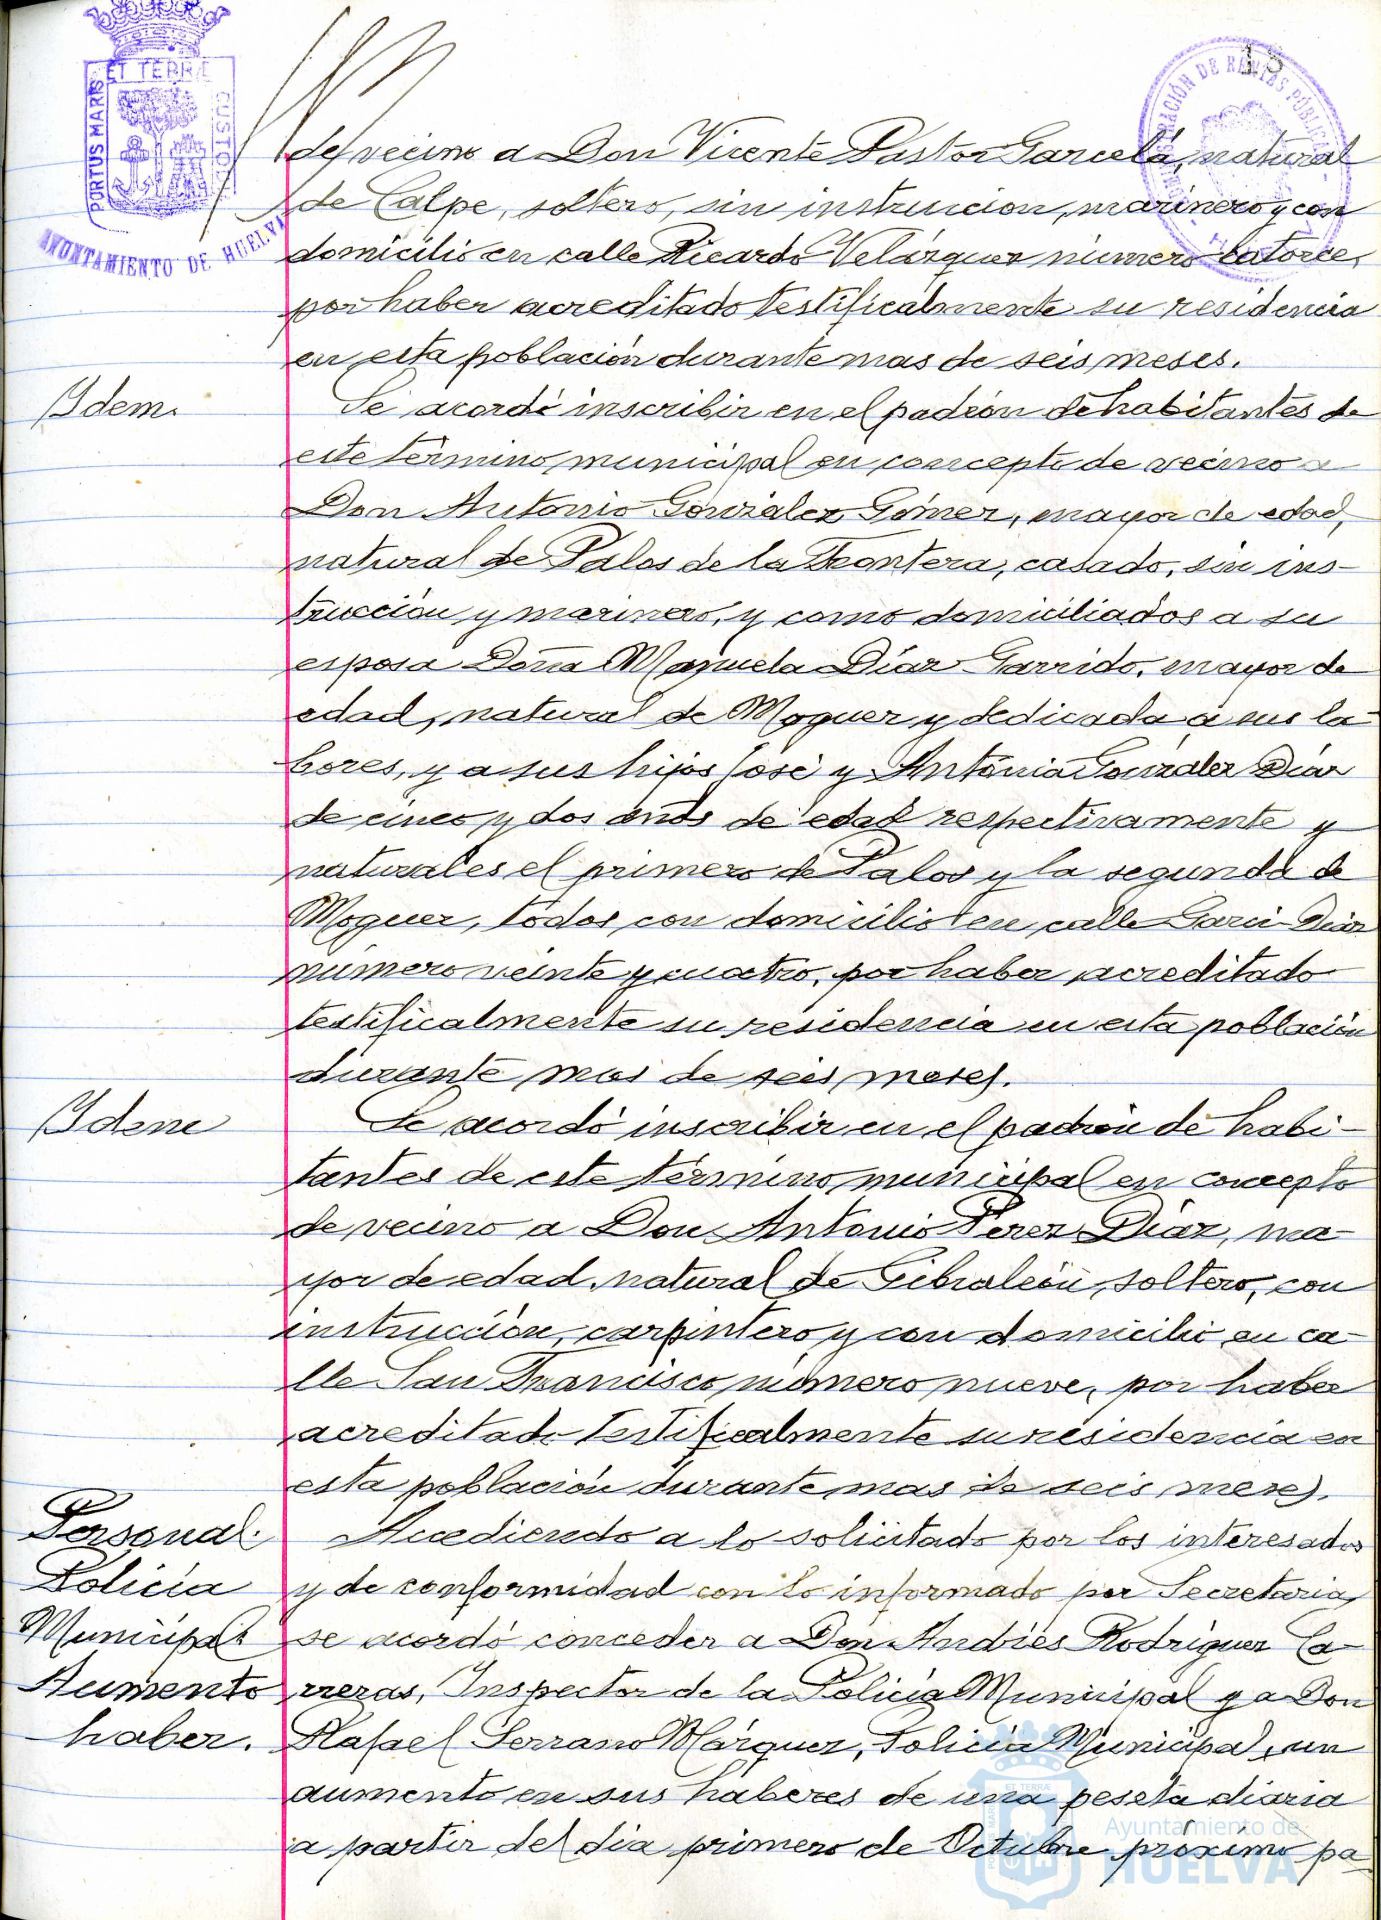 13
ET TERRÆ
PORTUS MARIS
CUSTODIA
AYUNTAMIENTO DE HUELVA
ADMINISTRACIÓN DE RENTAS PÚBLICAS
de vecino a Don Vicente Pastor Garcelá, natural
de Calpe, soltero, sin instrucion, marinero y con
domicilio en calle Ricardo Velázquez número catorce,
por haber acreditado testificalmente su residencia
en esta población durante mas de seis meses.
Ydem.
Se acordó inscribir en el padrón de habitantes de
este término municipal en concepto de vecino a
Don Antonio González Gómez, mayor de edad,
natural de Palos de la Frontera, casado, sin ins-
trucción y marinero, y como domiciliados a su
esposa Doña Manuela Díaz Garrido, mayor de
edad, natural de Moguer y dedicada a sus la-
bores, y a sus hijos José y Antonia González Díaz
de cinco y dos años de edad respectivamente y
naturales el primero de Palos y la segunda de
Moguer, todos con domicilio en calle Garci-Díaz
número veinte y cuatro, por haber acreditado
testificalmente su residencia en esta población
durante mas de seis meses.
Ydem
Se acordó inscribir en el padrón de habi-
tantes de este término municipal en concepto
de vecino a Don Antonio Pérez Díaz, ma-
yor de edad, natural de Gibraleón, soltero, con
instrucción, carpintero y con domicilio en ca-
lle San Francisco, número nueve, por haber
acreditado testificalmente su residencia en
esta población durante mas de seis meses.
Personal.
Policía
Municipal
Aumento
haber.
Accediendo a lo solicitado por los interesados
y de conformidad con lo informado por Secretaria,
se acordó conceder a Don Andrés Rodríguez Ca-
rreras, Inspector de la Policía Municipal y a Don
Rafael Serrano Márquez, Policía Municipal, un
aumento en sus haberes de una peseta diaria
a partir del día primero de Octubre próximo pa-
ET TERRÆ
Ayuntamiento de
HUELVA